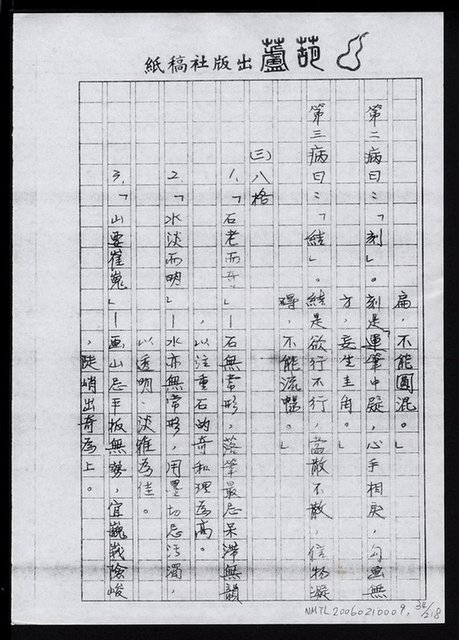 紙稿社版出蘆葫
扁，不能圓混。」
第二病曰：「刻」。刻是「運筆中疑，心手相戾，勾畫無
方，妄生圭角。
第三病曰：「結」。結是欲行不行，當散不散，似物凝
礙，不能流暢。」
(三)八格
1.「石老而奇」—石無常形，落筆最忌呆滯無韻
，以注重石的奇和理為高。
2.「水淡而明」—水亦無常形，用墨切忌污濁，
以透明、淡雅為佳。
3.「山要崔嵬」—畫山忌平板無勢，宜巍峩險峻
，陡峭出奇為上。
NMTL20060210009, 38/218